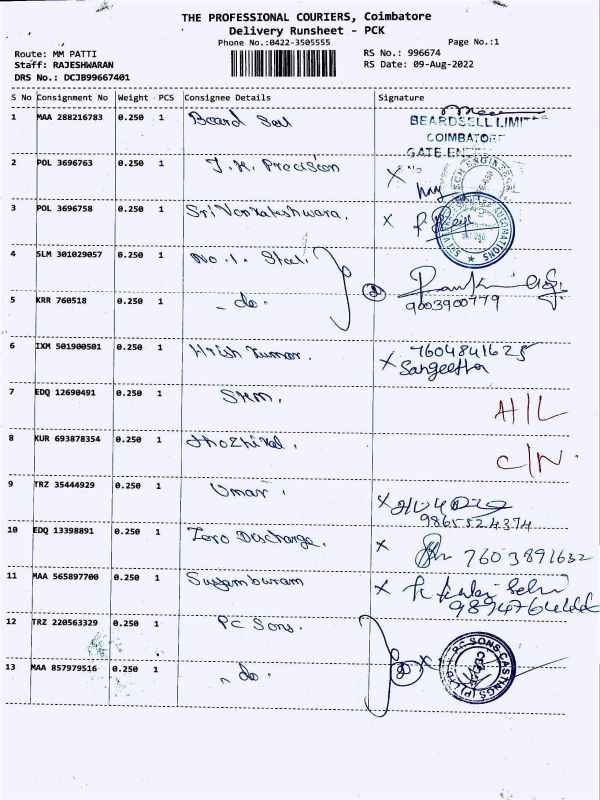 THE PROFESSIONAL COURIERS, Coimbatore
Delivery Runsheet - PCK
Phone No.:0422-3505555 Page No.:1
Route: MM PATTI RS No.: 996674
Staff: RAJESHWARAN RS Date: 09-Aug-2022
DRS No.: DCJB99667401
S No Consignment No Weight PCS Consignee Details Signature
1 MAA 288216783 0.250 1 Beard Sell
BEARDSELL LIMIT
COIMBATOR
GATE ENT
2 POL 3696763 0.250 1 J.K. Precision X
3 POL 3696758 0.250 1 Sri Venkateshwara. X
4 SLM 301029057 0.250 1 No.1.
5 KRR 760518 0.250 1 - do - 9003900779
6 IXM 501900501 0.250 1 Hrish Kumar. 7604841625
X Sangeetha
7 EDQ 12690491 0.250 1 SKM. H/L
8 KUR 693878354 0.250 1 C/N.
9 TRZ 35444929 0.250 1 Umar. X
9865524374
10 EDQ 13398891 0.250 1 Zero Discharge. X 7603891632
11 MAA 565897700 0.250 1 Suyamburam X
12 TRZ 220563329 0.250 1 PC Sons.
PC SONS CASTINGS (P) LTD
13 MAA 857979516 0.250 1 - do - X